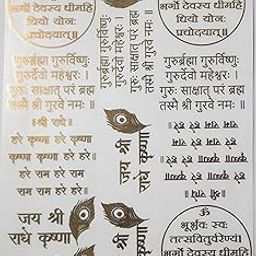 भर्गो देवस्य धीमहि
धियो योनः
प्रचोदयात्॥
भर्गो देवस्य धीमहि
धियो योनः
प्रचोदयात्॥
गुरुर्ब्रह्मा गुरुर्विष्णुः
गुरुर्देवो महेश्वरः ।
गुरुः साक्षात् परं ब्रह्म
तस्मै श्री गुरवे नमः ॥
गुरुर्ब्रह्मा गुरुर्विष्णुः
गुरुर्देवो महेश्वरः ।
गुरुः साक्षात् परं ब्रह्म
तस्मै श्री गुरवे नमः ॥
गुरुर्ब्रह्मा गुरुर्विष्णुः
गुरुर्देवो महेश्वरः ।
गुरुः साक्षात् परं ब्रह्म
तस्मै श्री गुरवे नमः ॥
॥ श्री राधे ॥
हरे कृष्णा हरे कृष्णा
कृष्णा कृष्णा हरे हरे
हरे राम हरे राम
राम राम हरे हरे ॥
जय श्री
राधे कृष्णा
॥ श्री राधे ॥
हरे कृष्णा हरे कृष्णा
कृष्णा कृष्णा हरे हरे
हरे राम हरे राम
राम राम हरे हरे ॥
जय श्री
राधे कृष्णा
ॐ
भूर्भुवः स्वः
तत्सवितुर्वरेण्यं
भर्गो देवस्य धीमहि